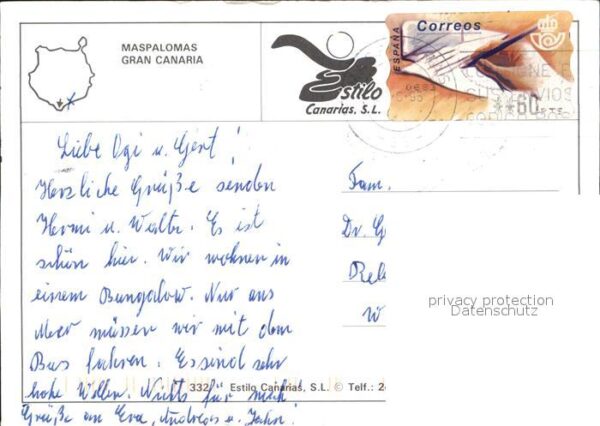 MASPALOMAS
GRAN CANARIA
Estilo
Canarias, S.L.
Correos
ESPAÑA
**60 PTS
Liebe Ogi u. Gert!
Herzliche Grüße senden
Hermi u. Walter. Es ist
schön hier. Wir wohnen in
einem Bungalow. Nur ans
Meer müssen wir mit dem
Bus fahren. Es sind sehr
hohe Wellen. Nichts für mich!
Grüße an Eva, Andreas u. Jahn!
Fam.
Dr. G
W
privacy protection
Datenschutz
332 Estilo Canarias, S.L. © Telf.: 2